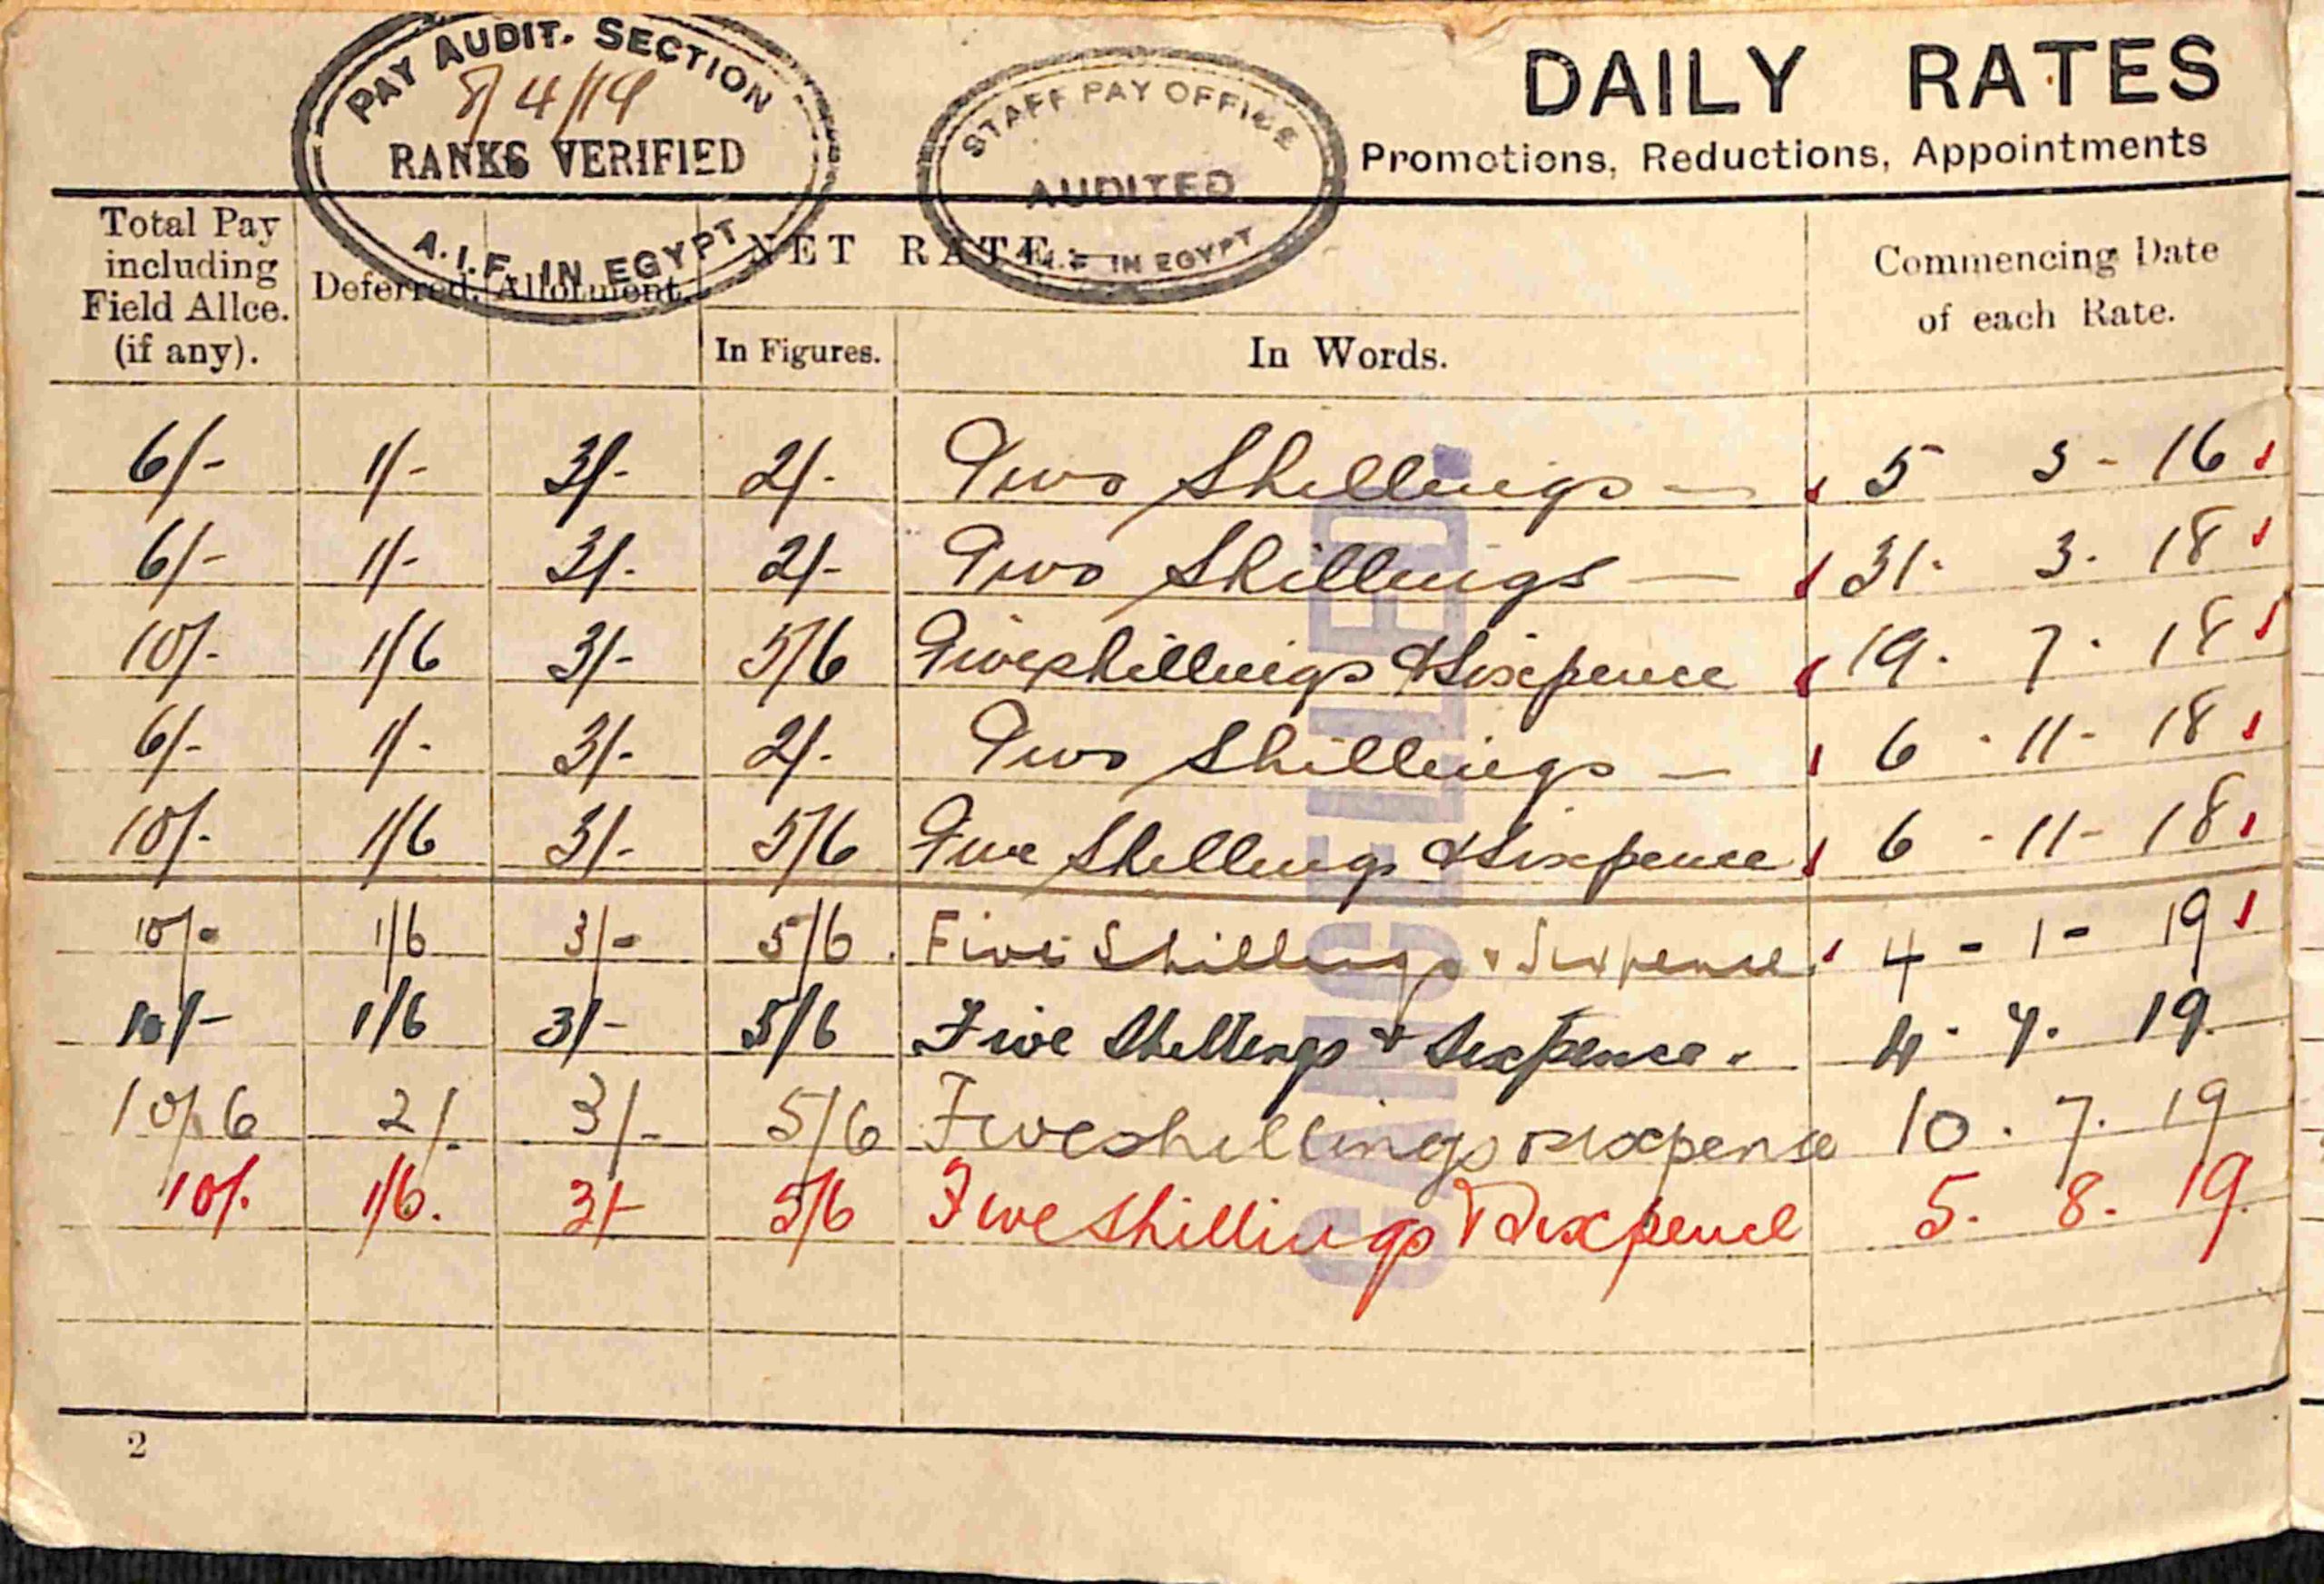 PAY AUDIT. SECTION
8/4/19
RANKS VERIFIED
A.I.F. IN EGYPT
STAFF PAY OFFICE
AUDITED
A.I.F. IN EGYPT
DAILY RATES
Promotions, Reductions, Appointments
Total Pay including Field Allce. (if any).
Deferred. Allotment.
NET RATE.
In Figures. In Words.
Commencing Date of each Rate.
6/- 1/- 3/- 2/- Two Shillings — 5 3 - 16
6/- 1/- 3/- 2/- Two Shillings — 31. 3. 18
10/- 1/6 3/- 5/6 Five shillings & Sixpence 19. 7. 18
6/- 1/- 3/- 2/- Two Shillings — 6 - 11 - 18
10/- 1/6 3/- 5/6 Five Shillings & Sixpence 6 - 11 - 18
10/- 1/6 3/- 5/6 Five Shillings & Sixpence 4 - 1 - 19
10/- 1/6 3/- 5/6 Five Shillings & Sixpence. 4. 4. 19.
10/6 2/- 3/- 5/6 Five shillings & sixpense 10. 7. 19
10/- 1/6. 3/- 5/6 Five shillings & Sixpence 5. 8. 19.
CANCELLED.
2